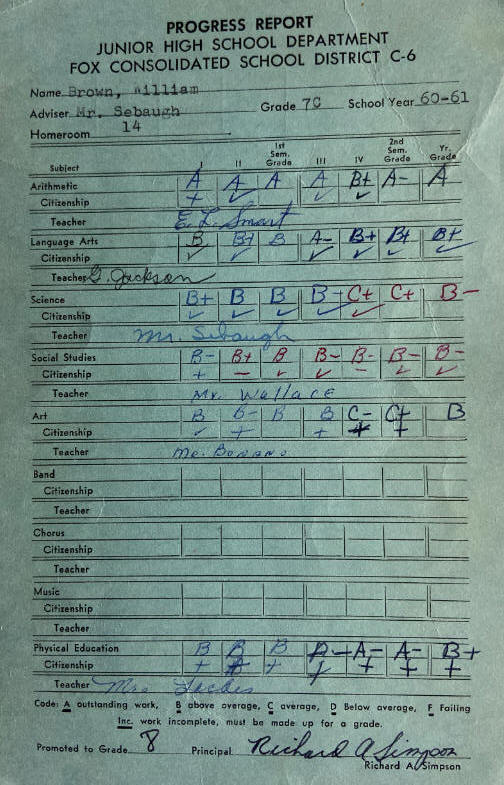 PROGRESS REPORT
JUNIOR HIGH SCHOOL DEPARTMENT
FOX CONSOLIDATED SCHOOL DISTRICT C-6
Name Brown, William
Adviser Mr. Sebaugh Grade 7C School Year 60-61
Homeroom 14
Subject I II 1st Sem. Grade III IV 2nd Sem. Grade Yr. Grade
Arithmetic A A A A B+ A- A
Citizenship + ✓ ✓ ✓
Teacher E. L. Smart
Language Arts B B+ B A- B+ B+ B+
Citizenship ✓ ✓ ✓ ✓ ✓ ✓
Teacher G. Jackson
Science B+ B B B- C+ C+ B-
Citizenship ✓ ✓ ✓ ✓ ✓
Teacher Mr. Sebaugh
Social Studies B- B+ B B- B- B- B-
Citizenship + - ✓ ✓ - ✓ ✓
Teacher Mr. Wallace
Art B B- B B C- C+ B
Citizenship ✓ + + + +
Teacher Mr. Bonano
Band
Citizenship
Teacher
Chorus
Citizenship
Teacher
Music
Citizenship
Teacher
Physical Education B B B A- A- B+
Citizenship + + + + + +
Teacher Mrs
Code: A outstanding work, B above average, C average, D Below average, F Failing
Inc. work incomplete, must be made up for a grade.
Promoted to Grade 8 Principal Richard A Simpson
Richard A. Simpson